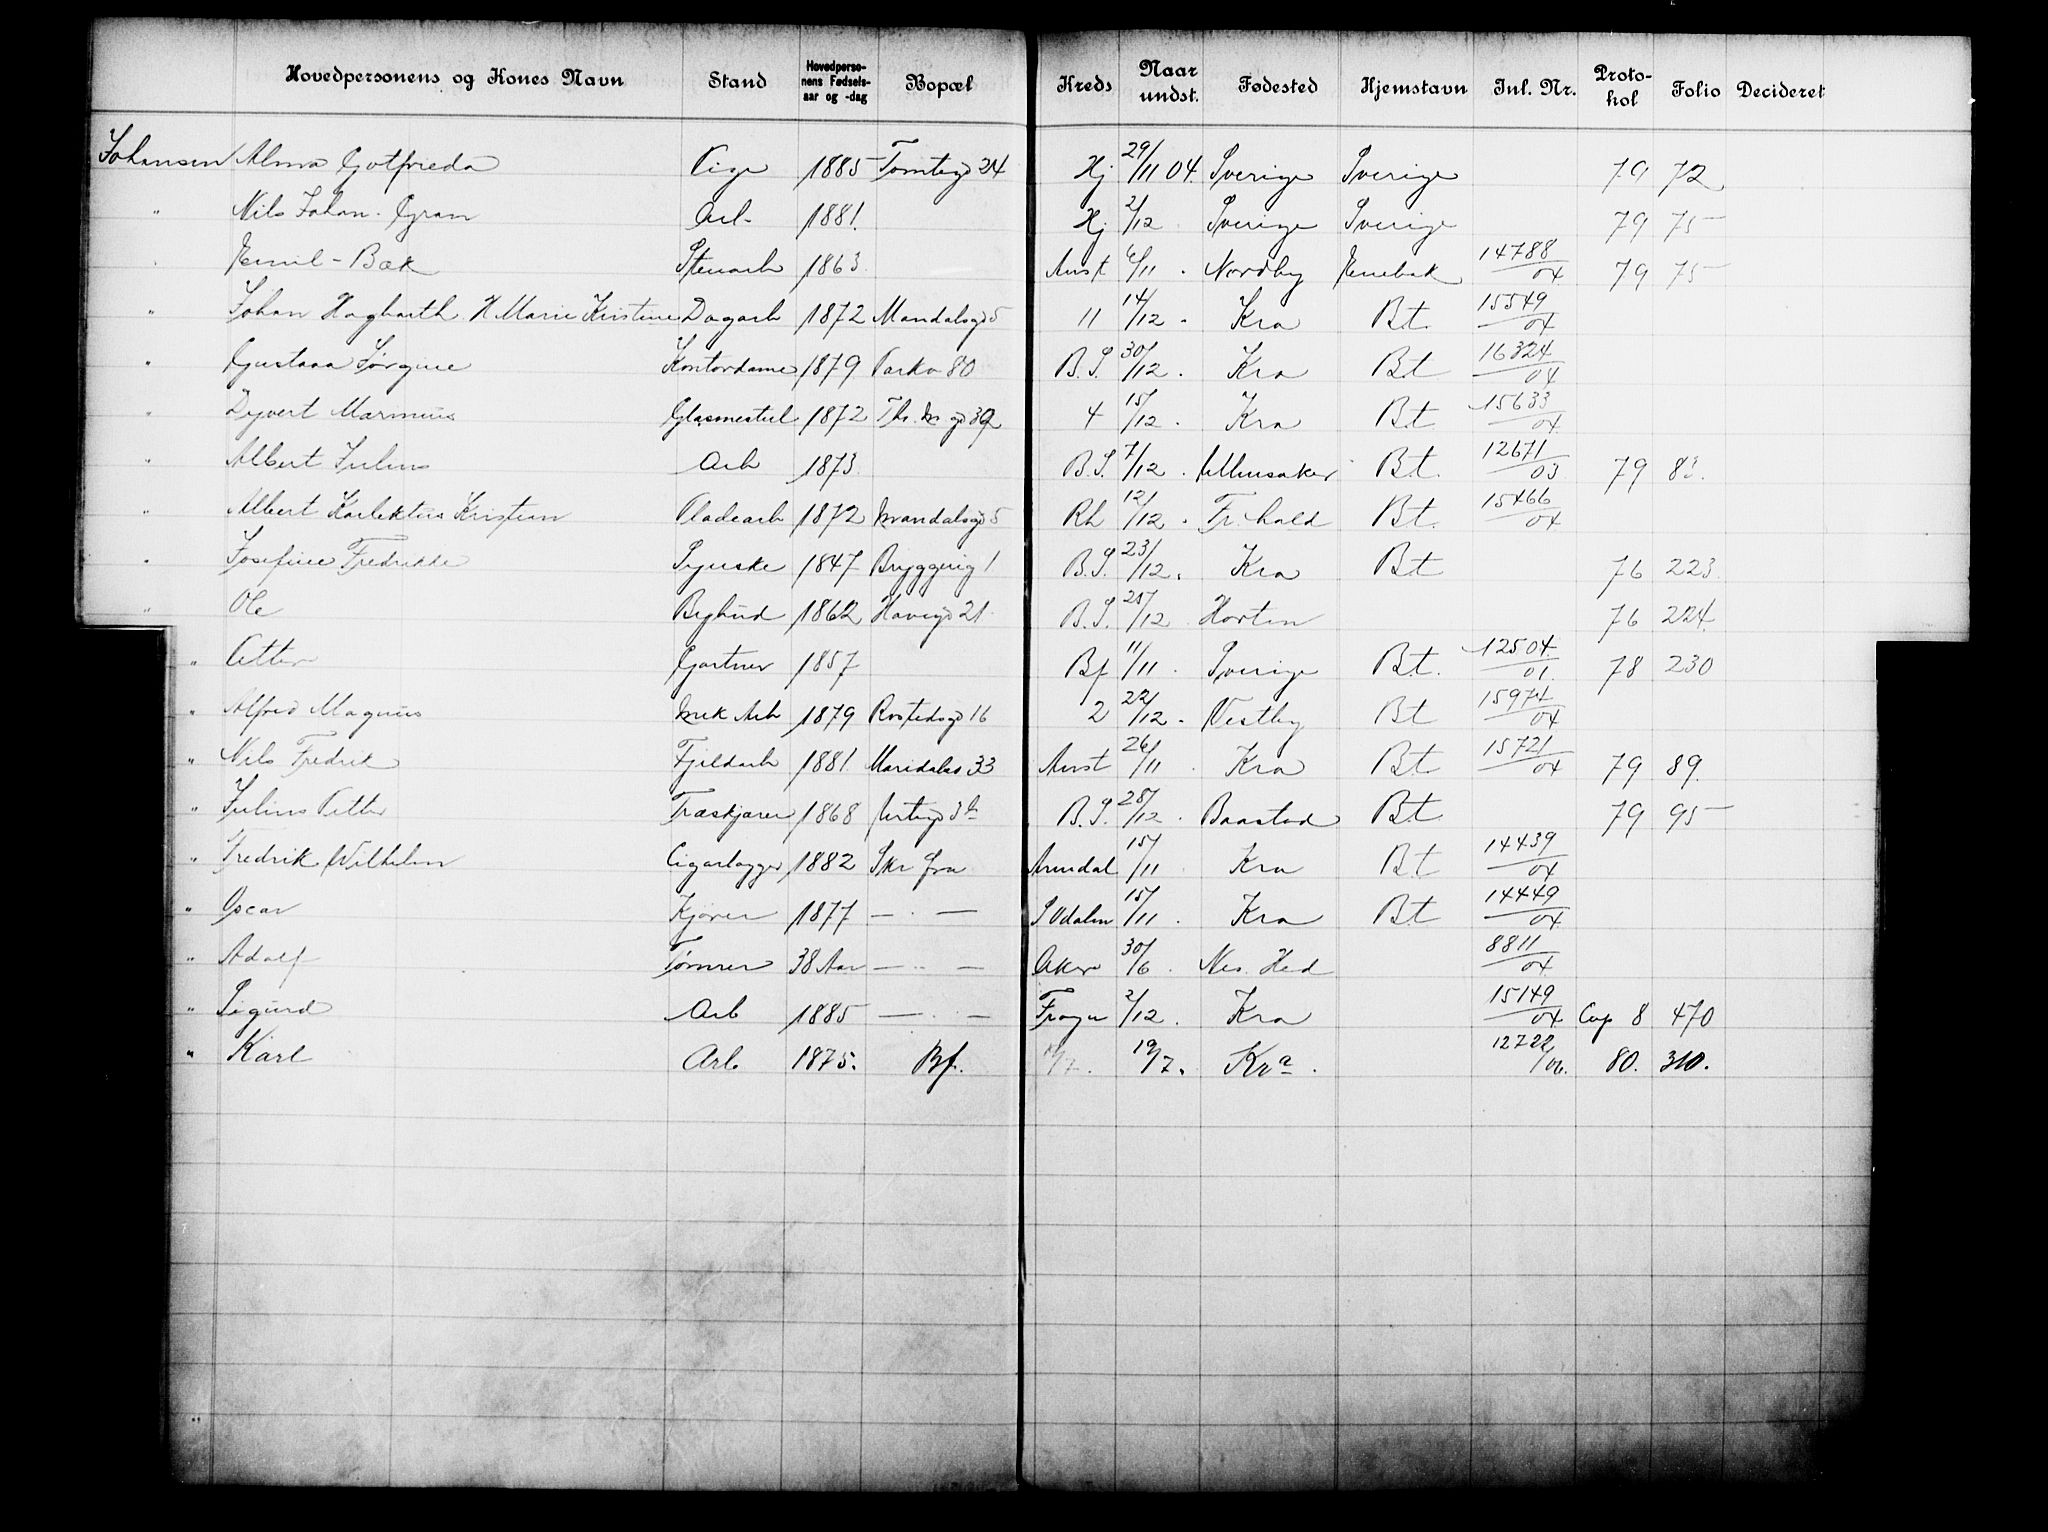 Hovedpersonens og Kones Navn Stand Hovedpersonens Fødselsaar og -dag Bopæl Kreds Naar undst. Fødested Hjemstavn Inl. Nr. Protokol Folio Decideret
Johansen Alma Gotfrieda Pige 1885 Tomtegd 24 Hj 29/11 04 Sverige Sverige 79 72
" Nils Johan Gran Arb. 1881. Hj 2/12 Sverige Sverige 79 75
" Emil - Bæk Stenarb 1863. Anst 6/11 . Nordby Enebak 14788/04 79 75
" Johan Hagbarth H Marie Kristine Dagarb 1872 Mandalsgd 5 11 14/12 . Kra Bt. 15549/04
" Gustava Jørgine Kontordame 1879 Parkv 80 B.S. 30/12 . Kra Bt 16324/04
" Dyvert Marinius Glasmestel 1872 Ths. M gd 39 4 15/12 . Kra Bt 15633/04
" Albert Julius Arb 1873. B.S. 7/12 . Ullensaker Bt. 12671/03 79 83.
" Albert Kristian Pladearb 1872 Mandalsgd 5 Rh 12/12 . Fr.hald Bt. 15466/04
" Josefine Fredrikke Syerske 1847 Bryggerig 1 B.S. 23/12. Kra Bt 76 223.
" Ole Bybud 1862 Havegd 21. B.S. 25/12 Horten 76 224.
" Petter Gartner 1857 Bf 11/11 . Sverige Bt. 12504/01. 78 230
" Alfred Magnus Mek Arb 1879 Rostedsgd 16 2 22/12 . Vestby Bt 15974/04
" Nils Fredrik Fjeldarb 1881. Maridalsv 33 Anst 26/11 . Kra Bt 15721/04 79 89.
" Julius Petter Træskjærer 1868 B.S. 28/12 . Baastad Bt 79 95
" Fredrik Wilhelm Cigarlagger 1882 Skr fra Arendal 15/11 Kra Bt 14439/04
" Oscar Kjører 1877 — . — S Odalen 15/11 . Kra Bt 14449/04
" Adolf Tømrer 38 Aar — .. — Aker 30/6 . Nes. Hed 8811/04
" Sigurd Arb 1885 — . — Frogn 2/12 . Kra 15149/04 Cap 8 470
" Karl Arb 1875. Bf. 19/7. Kra . 12722/06. 80. 310.